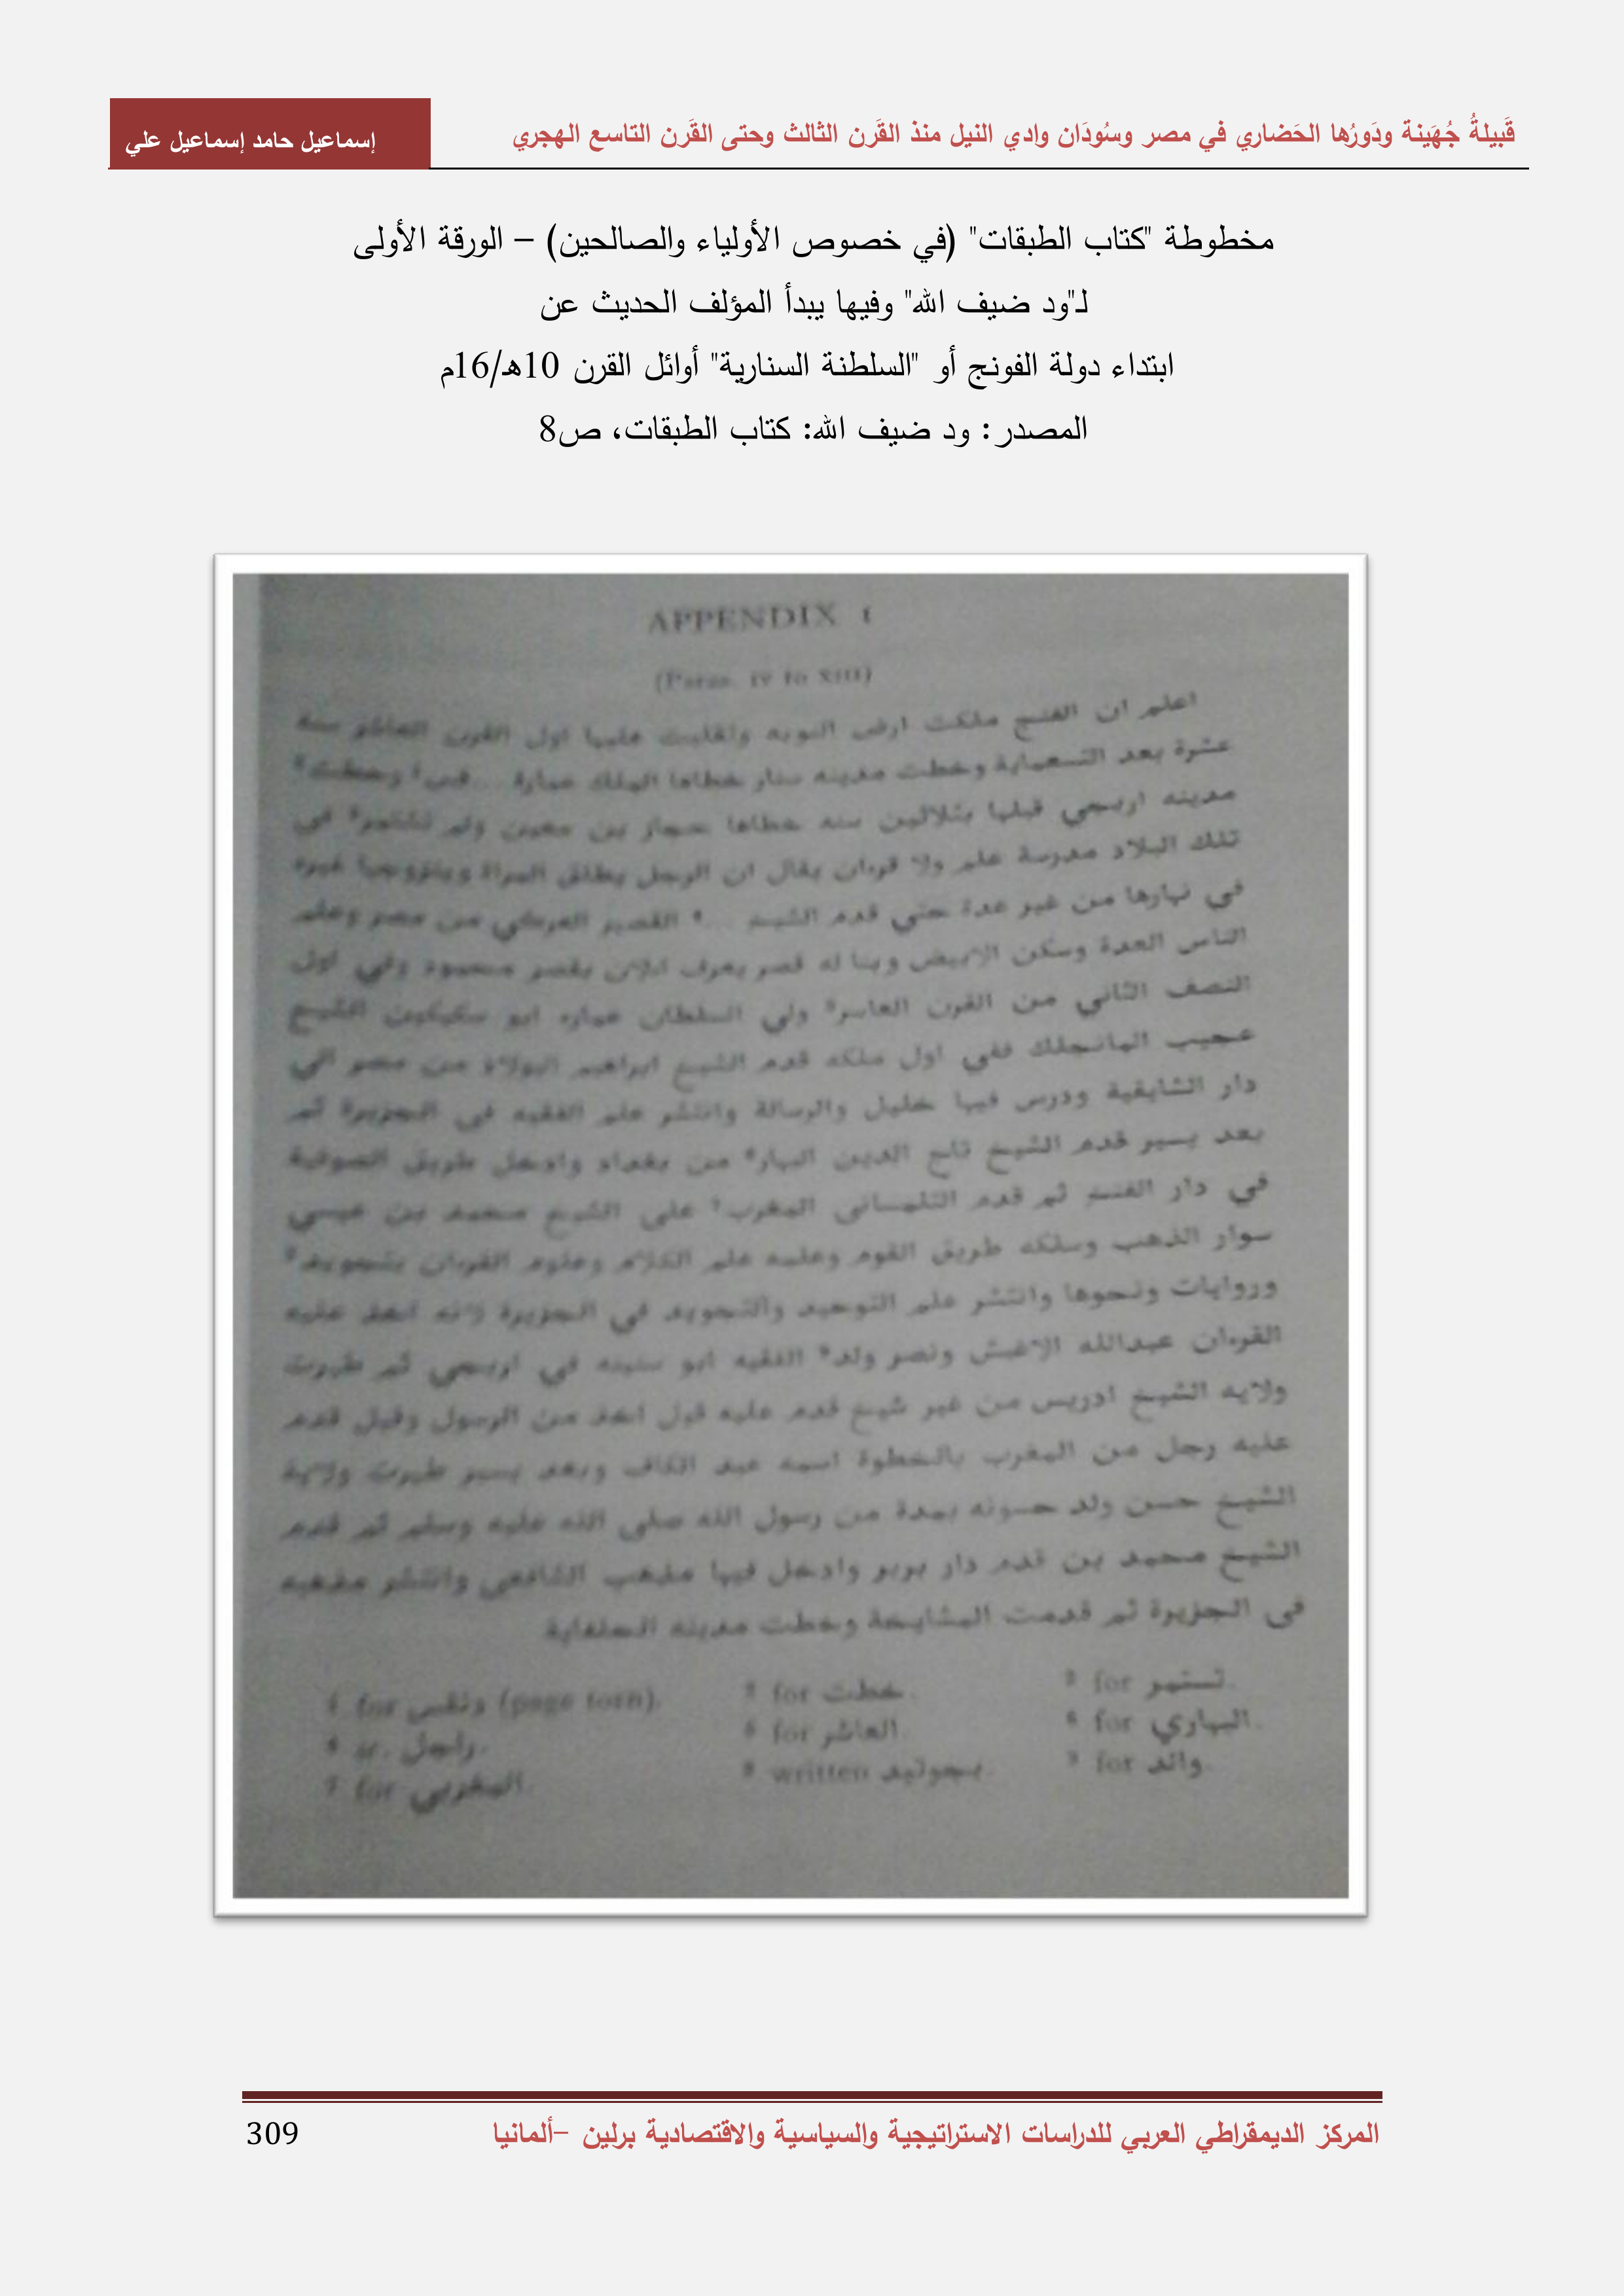 قَبيلةُ جُهَينة ودَورُها الحَضاري في مصر وسُودَان وادي النيل منذ القَرن الثالث وحتى القَرن التاسع الهجري
إسماعيل حامد إسماعيل علي
مخطوطة "كتاب الطبقات" (في خصوص الأولياء والصالحين) – الورقة الأولى
لـ"ود ضيف الله" وفيها يبدأ المؤلف الحديث عن
ابتداء دولة الفونج أو "السلطنة السنارية" أوائل القرن 10هـ/16م
المصدر: ود ضيف الله: كتاب الطبقات، ص8
APPENDIX I
(Paras. iv to xiii)
اعلم ان الفنج ملكت ارض النوبه وتغلبت عليها اول القرن العاشر سنة
عشرة بعد التسعماية وخطت مدينه سنار خطاها الملك عمارة ... وخطت
مدينه اربجي قبلها بثلاثين سنه خطاها حجاز بن معين ولم في
تلك البلاد مدرسة علم ولا قرءان يقال ان الرجل يطلق المراة ويتزوجها غيره
في نهارها من غير عدة حتي قدم الشيخ ... القصير العركي من مصر وعلم
الناس العدة وسكن الابيض وبنا له قصر يعرف الان بقصر محمود وفي اول
النصف الثاني من القرن العاسر ولي السلطان عماره ابو سكيكين الشيخ
عجيب المانجلك ففي اول ملكه قدم الشيخ ابراهيم البولاد من مصر الي
دار الشايقية ودرس فيها خليل والرسالة وانتشر علم الفقيه في الجزيرة ثم
بعد يسير قدم الشيخ تاج الدين البهار من بغداد وادخل طريق الصوفية
في دار الفنج ثم قدم التلمساني المغرب على الشيخ محمد بن عيسي
سوار الذهب وسلكه طريق القوم وعلمه علم الكلام وعلوم القرءان
وروايات ونحوها وانتشر علم التوحيد والتجويد في الجزيرة لانه اخذ عليه
القرءان عبدالله الاغبش ونصر ولد الفقيه ابو سنينه في اربجي ثم ظهرت
ولايه الشيخ ادريس من غير شيخ قدم عليه قيل اخذ من الرسول وقيل قدم
عليه رجل من المغرب بالخطوة اسمه عبد الكاف وبعد يسير ظهرت ولاية
الشيخ حسن ولد حسونه بمدة من رسول الله صلى الله عليه وسلم ثم قدم
الشيخ محمد بن قدم دار بربر وادخل فيها مذهب الشافعي وانتشر مذهبه
في الجزيرة ثم قدمت المشايخة وخطت مدينه الحلفاية
1 for (page torn). 2 for خطت. 3 for تشتهر.
4 sc. راجل. 5 for العاشر. 6 for البهاري.
7 for المغربي. 8 written 9 for والد.
المركز الديمقراطي العربي للدراسات الاستراتيجية والسياسية والاقتصادية برلين –ألمانيا
309